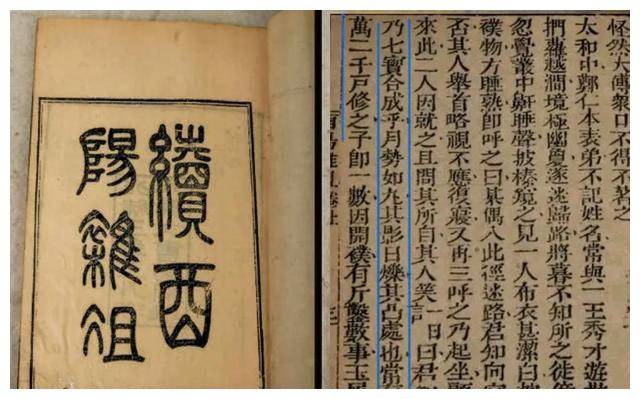 續酉
陽雜俎
怪然大傳衆口不得不著之
太和中鄭仁本表弟不記姓名常與一王秀才遊
捫蘿越澗境極幽夐遂迷歸路將暮不知所之徙
忽覺叢中鼾睡聲披榛窺之見一人布衣甚潔白枕
襆物方睡熟即呼之曰某偶入此徑迷路君知向
否其人舉首略視不應復寢又再三呼之乃起坐顧
來此二人因就之且問其所自其人笑曰君
乃七寶合成乎月勢如丸其影日爍其凸處也常
萬二千戶修之予即一數因開襆有斤鑿數事玉